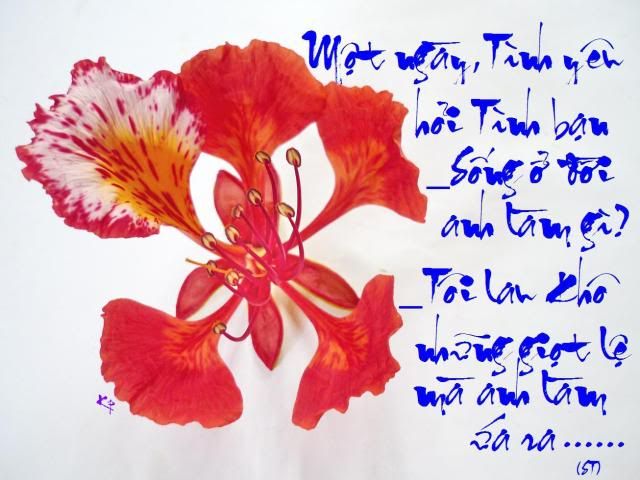 Một ngày, Tình yêu
hỏi Tình bạn
_Sống ở đời
anh làm gì?
_Tôi lau khô
những giọt lệ
mà anh làm
ứa ra......
(ST)